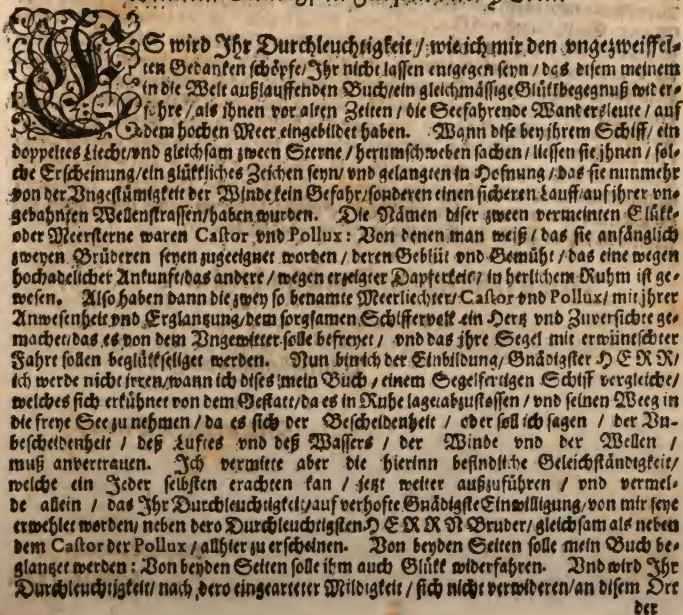 ES wird Ihr Durchleuchtigkeit / wie ich mir den vngezweiffel-
ten Gedanken schöpfe / Ihr nicht lassen entgegen seyn / das disem meinem
in die Welt außlauffenden Buch / ein gleichmässige Glükkbegegnuß wider-
fahre / als ihnen vor alten Zeiten / die Seefahrende Wandersleute / auf
dem hochen Meer eingebildet haben. Wann dise bey ihrem Schiff / ein
doppeltes Liecht / vnd gleichsam zween Sterne / herumschweben sachen / liessen sie ihnen / sol-
che Erscheinung / ein glükkliches Zeichen seyn / vnd gelangten in Hofnung / das sie nunmehr
von der Vngestümigkeit der Winde kein Gefahr / sonderen einen sicheren Lauff / auf ihrer vn-
gebahnten Wellenstrassen / haben wurden. Die Nämen diser zween vermeinten Glükk-
oder Meersterne waren Castor vnd Pollux: Von denen man weiß / das sie anfänglich
zweyen Brüderen seyen zugeeignet worden / deren Geblüt vnd Gemüht / das eine wegen
hochadelicher Ankunft / das andere / wegen erzeigter Dapferkeit / in herlichem Ruhm ist ge-
wesen. Also haben dann die zwey so benamte Meerliechter / Castor vnd Pollux / mit ihrer
Anwesenheit vnd Erglanzung / dem sorgsamen Schiffervolk ein Herz vnd Zuversichte ge-
machet / das es von dem Vngewitter solle befreyet / vnd das ihre Segel mit erwünschter
Fahrt sollen beglükkseliget werden. Nun bin ich der Einbildung / Gnädigster HERR /
ich werde nicht irren / wann ich dises mein Buch / einem Segelfertigen Schiff vergleiche /
welches sich erkühnet von dem Gestatt / da es in Ruhe lage / abzustossen / vnd seinen Weeg in
die freye See zu nehmen / da es sich der Bescheidenheit / oder soll ich sagen / der Vn-
bescheidenheit / deß Luftes vnd deß Wassers / der Winde vnd der Wellen /
muß anvertrauen. Ich vermitte aber die hierinn befindliche Geleichständigkeit /
welche ein Jeder selbsten erachten kan / jezt weiter außzuführen / vnd vermel-
de allein / das Ihr Durchleuchtigkeit / auf verhofte Gnädigste Einwilligung / von mir seye
erwehlet worden / neben dero Durchleuchtigsten HERRN Bruder / gleichsam als neben
dem Castor der Pollux / allhier zu erscheinen. Von beyden Seiten solle mein Buch be-
glanzet werden: Von beyden Seiten solle ihm auch Glükk widerfahren. Vnd wird Ihr
Durchleuchtigkeit / nach dero eingearteter Mildigkeit / sich nicht verwideren / an disem Ort
der